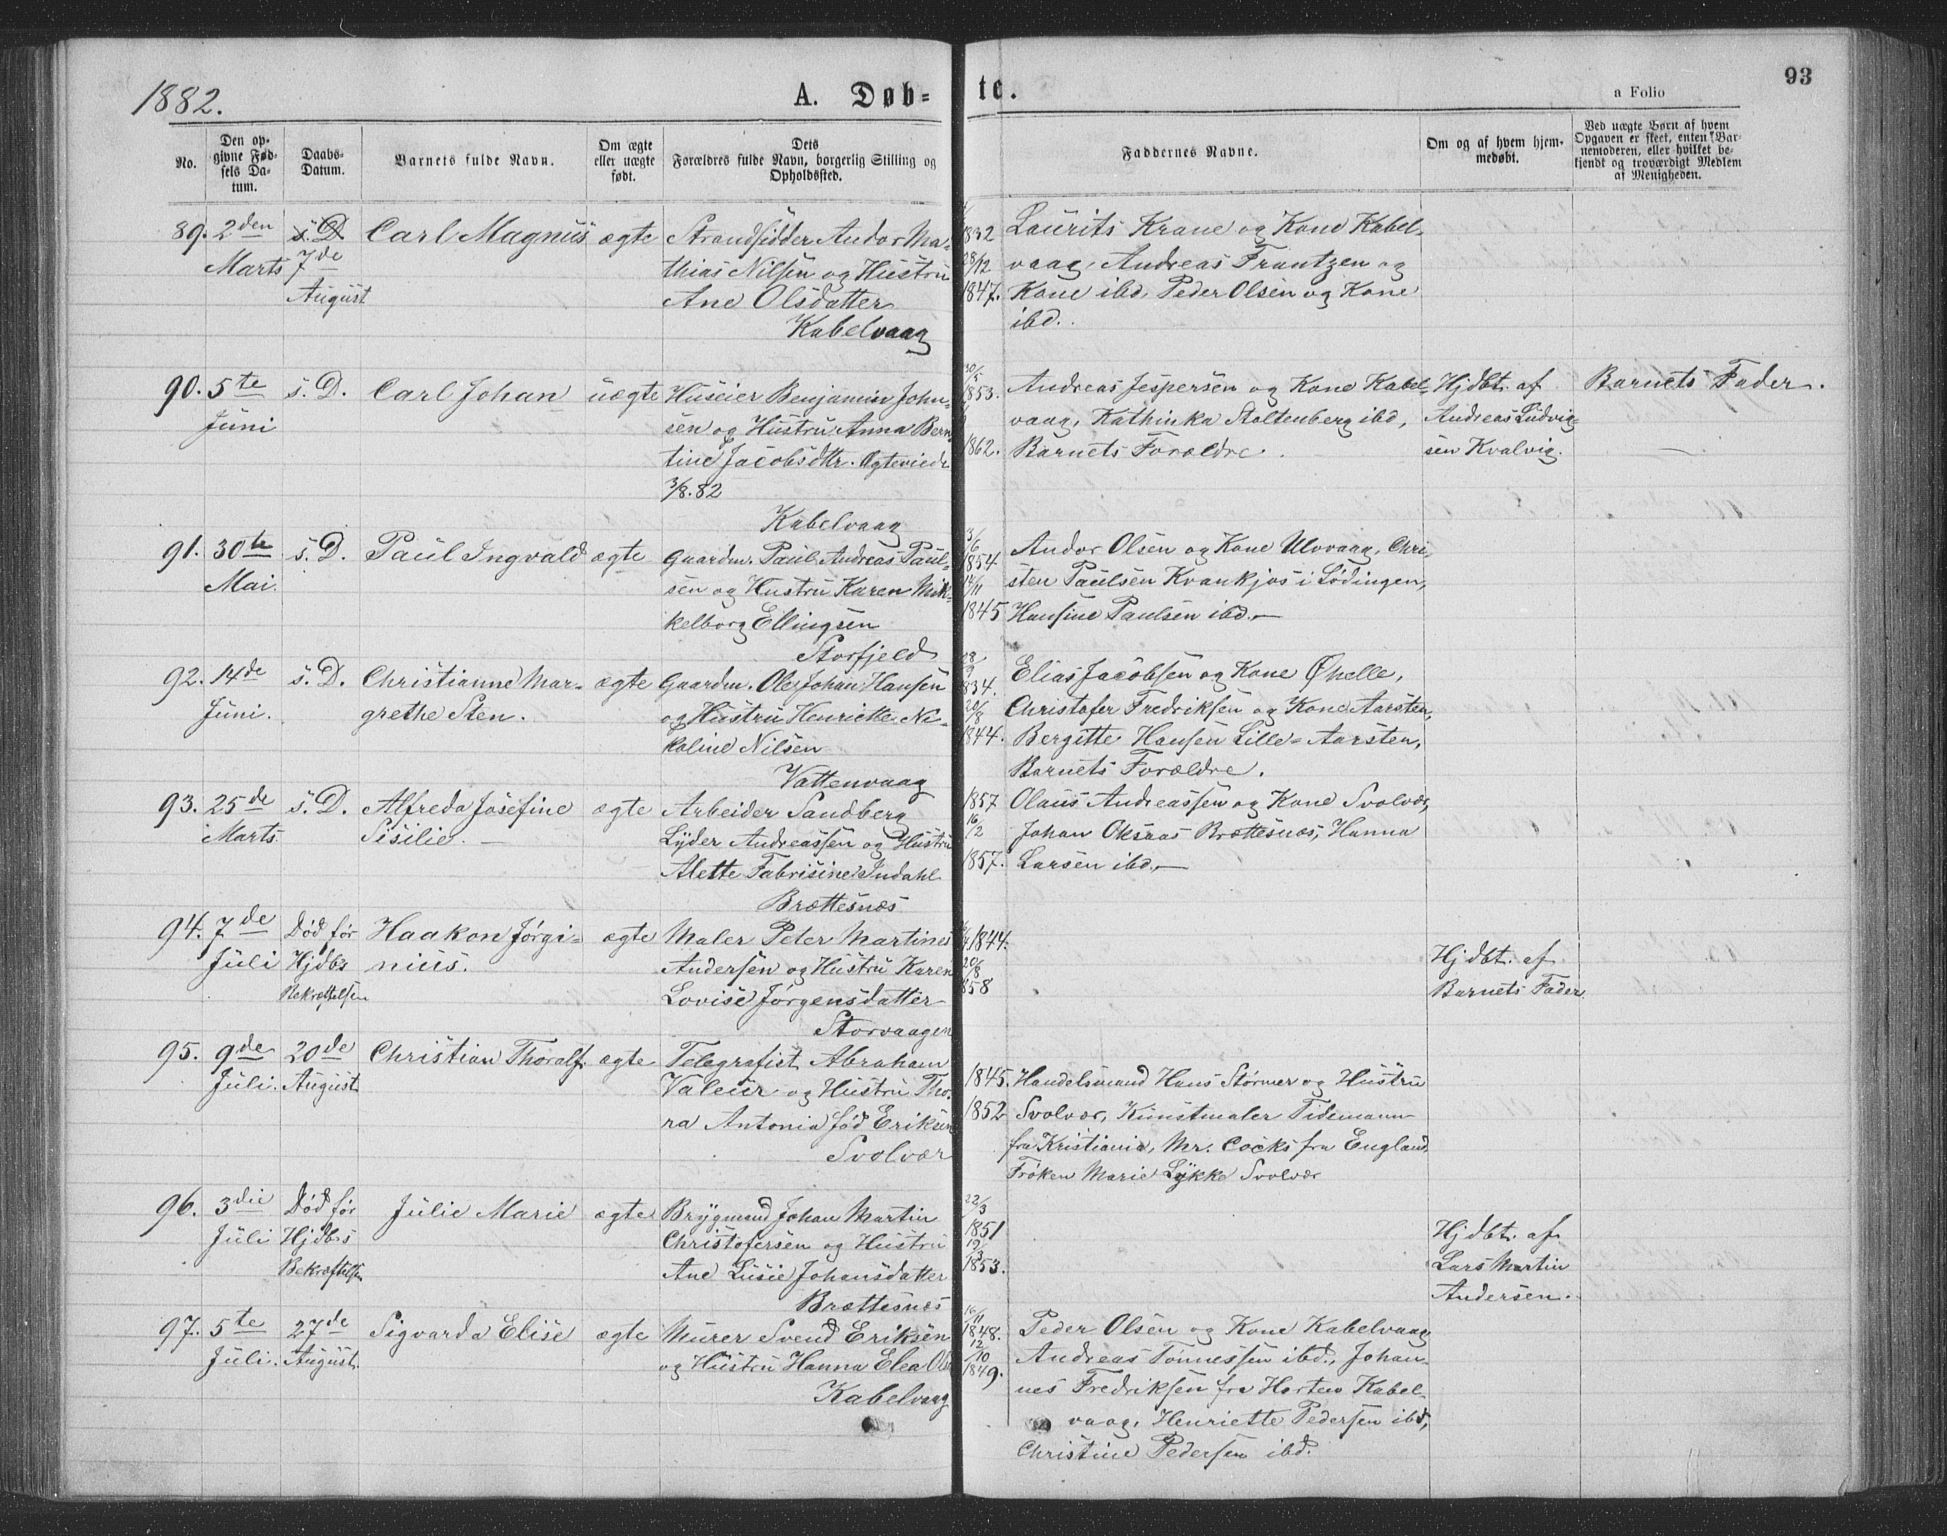 1882.
A. Døb-
te.
93
a Folio
No.
Den op-
givne Fød-
sels Da-
tum.
Daabs-
Datum.
Barnets fulde Navn.
Om ægte
eller uægte
født.
Dets
Forældres fulde Navn, borgerlig Stilling og
Opholdssted.
Faddernes Navne.
Om og af hvem hjem-
medøbt.
Ved uægte Børn af hvem
Opgaven er skeet, enten Bar-
nemoderen, eller hvilket be-
kjendt og troværdigt Medlem
af Menigheden.
89. 2den
Marts
s. D.
7de
August
Carl Magnus
ægte
Strandsidder Andor Ma-
thias Nilsen og Hustru
Ane Olsdatter
Kabelvaag
1832
28/12
1847.
Laurits Krane og Kone Kabel-
vaag, Andreas Frantzen og
Kone ibd, Peder Olsen og Kone
ibd.
90. 5te
Juni
s. D.
Carl Johan
uægte
Huseier Benjamin John-
sen og Hustru Anna Bern
tine Jacobsdtr. Ægteviede
3/8.82
Kabelvaag
1853.
1862.
Andreas Jespersen og Kone Kabel-
vaag, Kathinka Stoltenberg ibd,
Barnets Forældre.
Hjdbt. af
Andreas Ludvig-
sen Kvalvig.
Barnets Fader.
91. 30te
Mai.
s. D.
Paul Ingvald
ægte
Gaardm. Paul Andreas Paul-
sen og Hustru Karen Mik-
kelborg Ellingsen
Storfjeld
3/6
1854
14/11
1845
Andor Olsen og Kone Ulvvaag, Chri-
sten Paulsen Kvankjos i Lødingen,
Hansine Paulsen ibd.
92. 14de
Juni.
s. D.
Christianne Mar-
grethe Sten.
ægte
Gaardm. Ole Johan Hansen
og Hustru Henriette Ni-
koline Nilsen
Vattenvaag
28/9
1834.
20/8
1844.
Elias Jacobsen og Kone Øhelle,
Christofer Fredriksen og Kone Aarsten,
Bergitte Hansen Lille-Aarsten,
Barnets Forældre.
93. 25de
Marts.
s. D.
Alfreda Josefine
Sisilie.
ægte
Arbeider Sandberg
Lyder Andreassen og Hustru
Alette Fabrisine Indahl
Brettesnæs
1857
16/2
1857.
Olaus Andreassen og Kone Svolvær
Johan Oksaas Brættesnæs, Hanna
Larsen ibd,
94. 7de
Juli
Død før
Hjdbs
Bekræftelsen
Haakon Jørgi-
nius.
ægte
Maler Peter Martines
Andersen og Hustru Karen
Lovise Jørgensdatter
Storvaagen
1844.
20/8
858
Hjdbt. af
Barnets Fader.
95. 9de
Juli.
20de
August
Christian Thoralf
ægte
Telegrafist Abraham
Valeur og Hustru Tho-
ra Antonia fød Eriksen
Svolvær
1845.
1852
Handelsmand Hans Størmer og Hustru
Svolvær, Kunstmaler Tidemann
fra Kristiania, Mr. Cocks fra England
Frøken Marie Lykke Svolvær
96. 3die
Juli
Død før
Hjdbs
Bekræftelsen
Julie Marie
ægte
Brygmand Johan Martin
Christofersen og Hustru
Ane Lusie Johansdatter
Brættesnæs
22/3
1851
19/3
1853.
Hjdbt. af
Lars Martin
Andersen.
97. 5te
Juli.
27de
August.
Sigvarda Elise
ægte
Murer Svend Eriksen
og Hustru Hanna Elea Ols
Kabelvaag
16/11
1848.
12/10
1849.
Peder Olsen og Kone Kabelvaag
Andreas Tønnessen ibd., Johan-
nes Fredriksen fra Horten Kabel-
vaag, Henriette Pedersen ibd,
Christine Pedersen ibd.